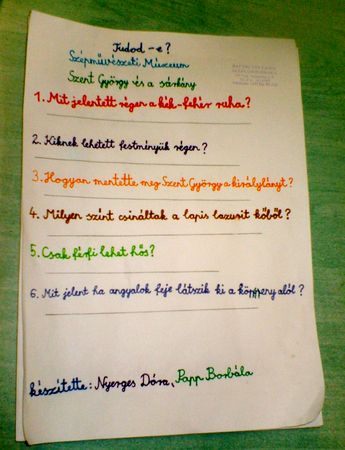 Tudod-e?
Szépművészeti Múzeum
Szent György és a sárkány
1. Mit jelentett régen a kék-fehér ruha?
2. Kiknek lehetett festményük régen?
3. Hogyan mentette meg Szent György a királylányt?
4. Milyen színt csináltak a lapis lazurit kőből?
5. Csak férfi lehet hős?
6. Mit jelent ha angyalok feje látszik ki a köppeny alól?
készítette: Nyerges Dóra, Papp Borbála